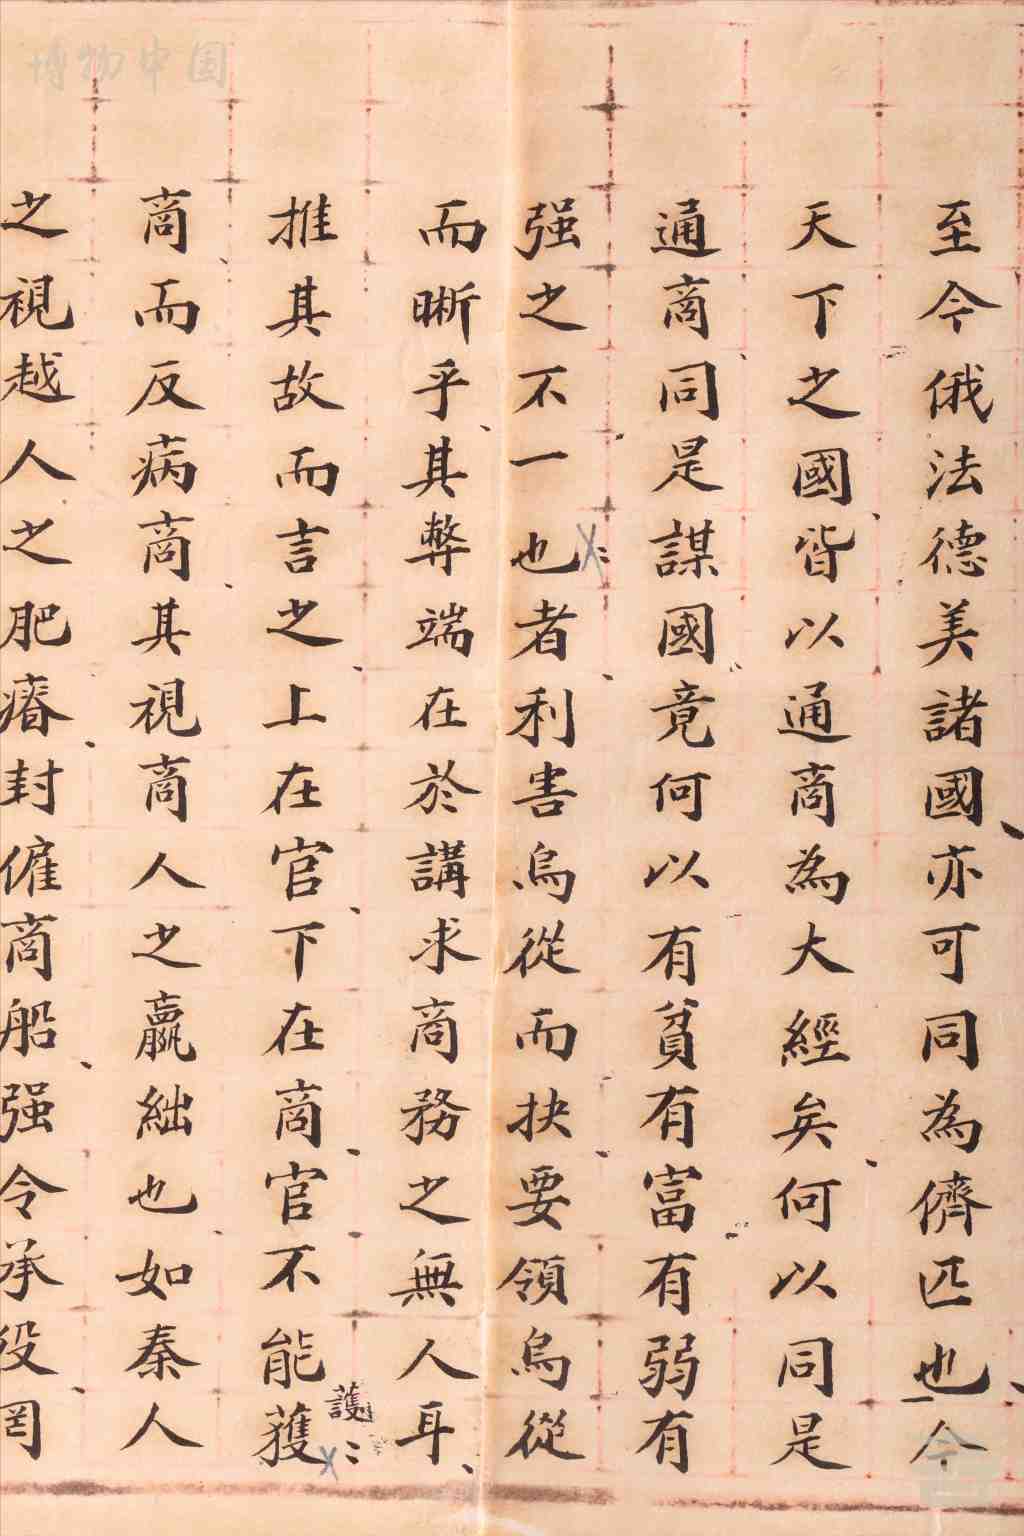 至今俄法德美諸國亦可同為儕匹也今
天下之國皆以通商為大經矣何以同是
通商同是謀國竟何以有貧有富有弱有
强之不一也者利害烏從而抉要領烏從
而晰乎其弊端在於講求商務之無人耳
推其故而言之上在官下在商官不能獲
護
商而反病商其視商人之贏絀也如秦人
之視越人之肥瘠封僱商船强令承役罔
博物中国